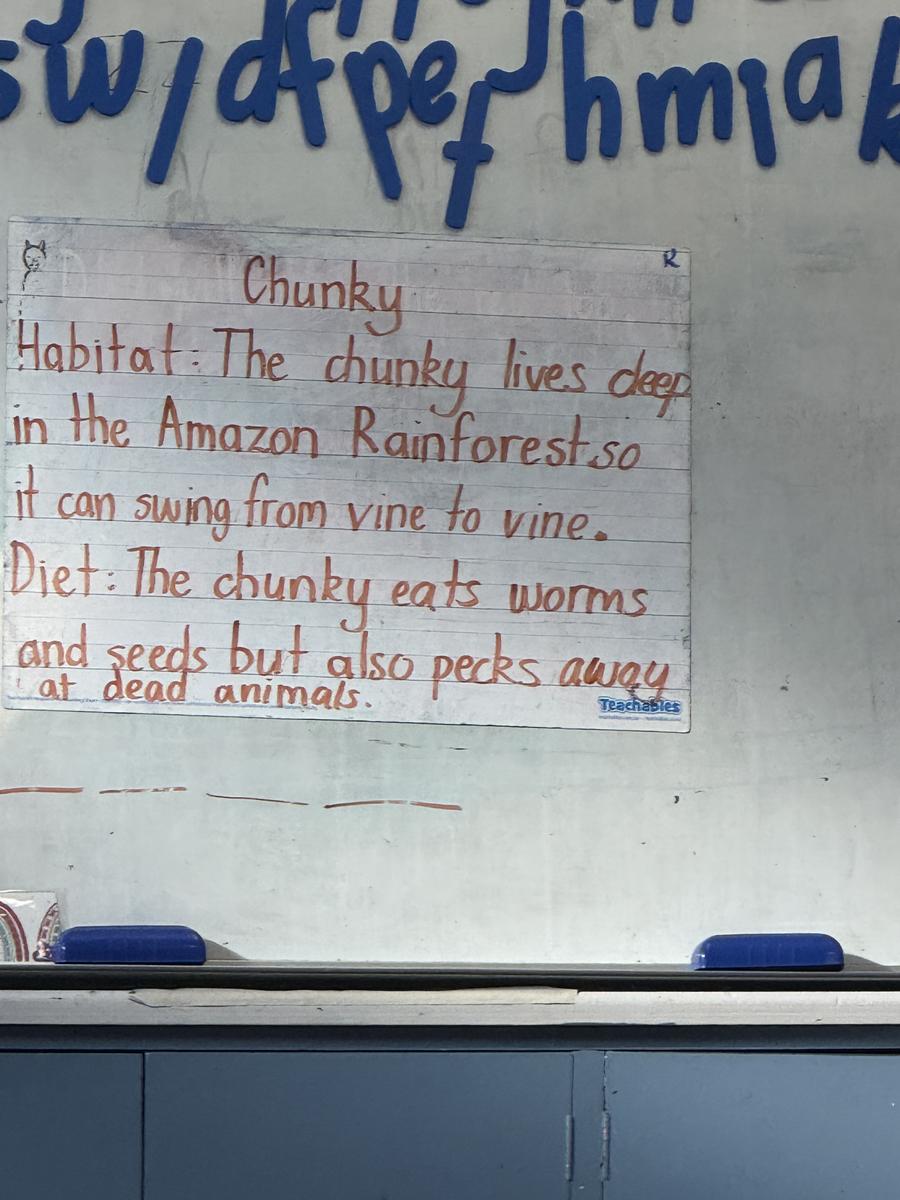 sw/dfpef hmia
R
Chunky
Habitat: The chunky lives deep
in the Amazon Rainforest so
it can swing from vine to vine.
Diet: The chunky eats worms
and seeds but also pecks away
at dead animals.
Teachables